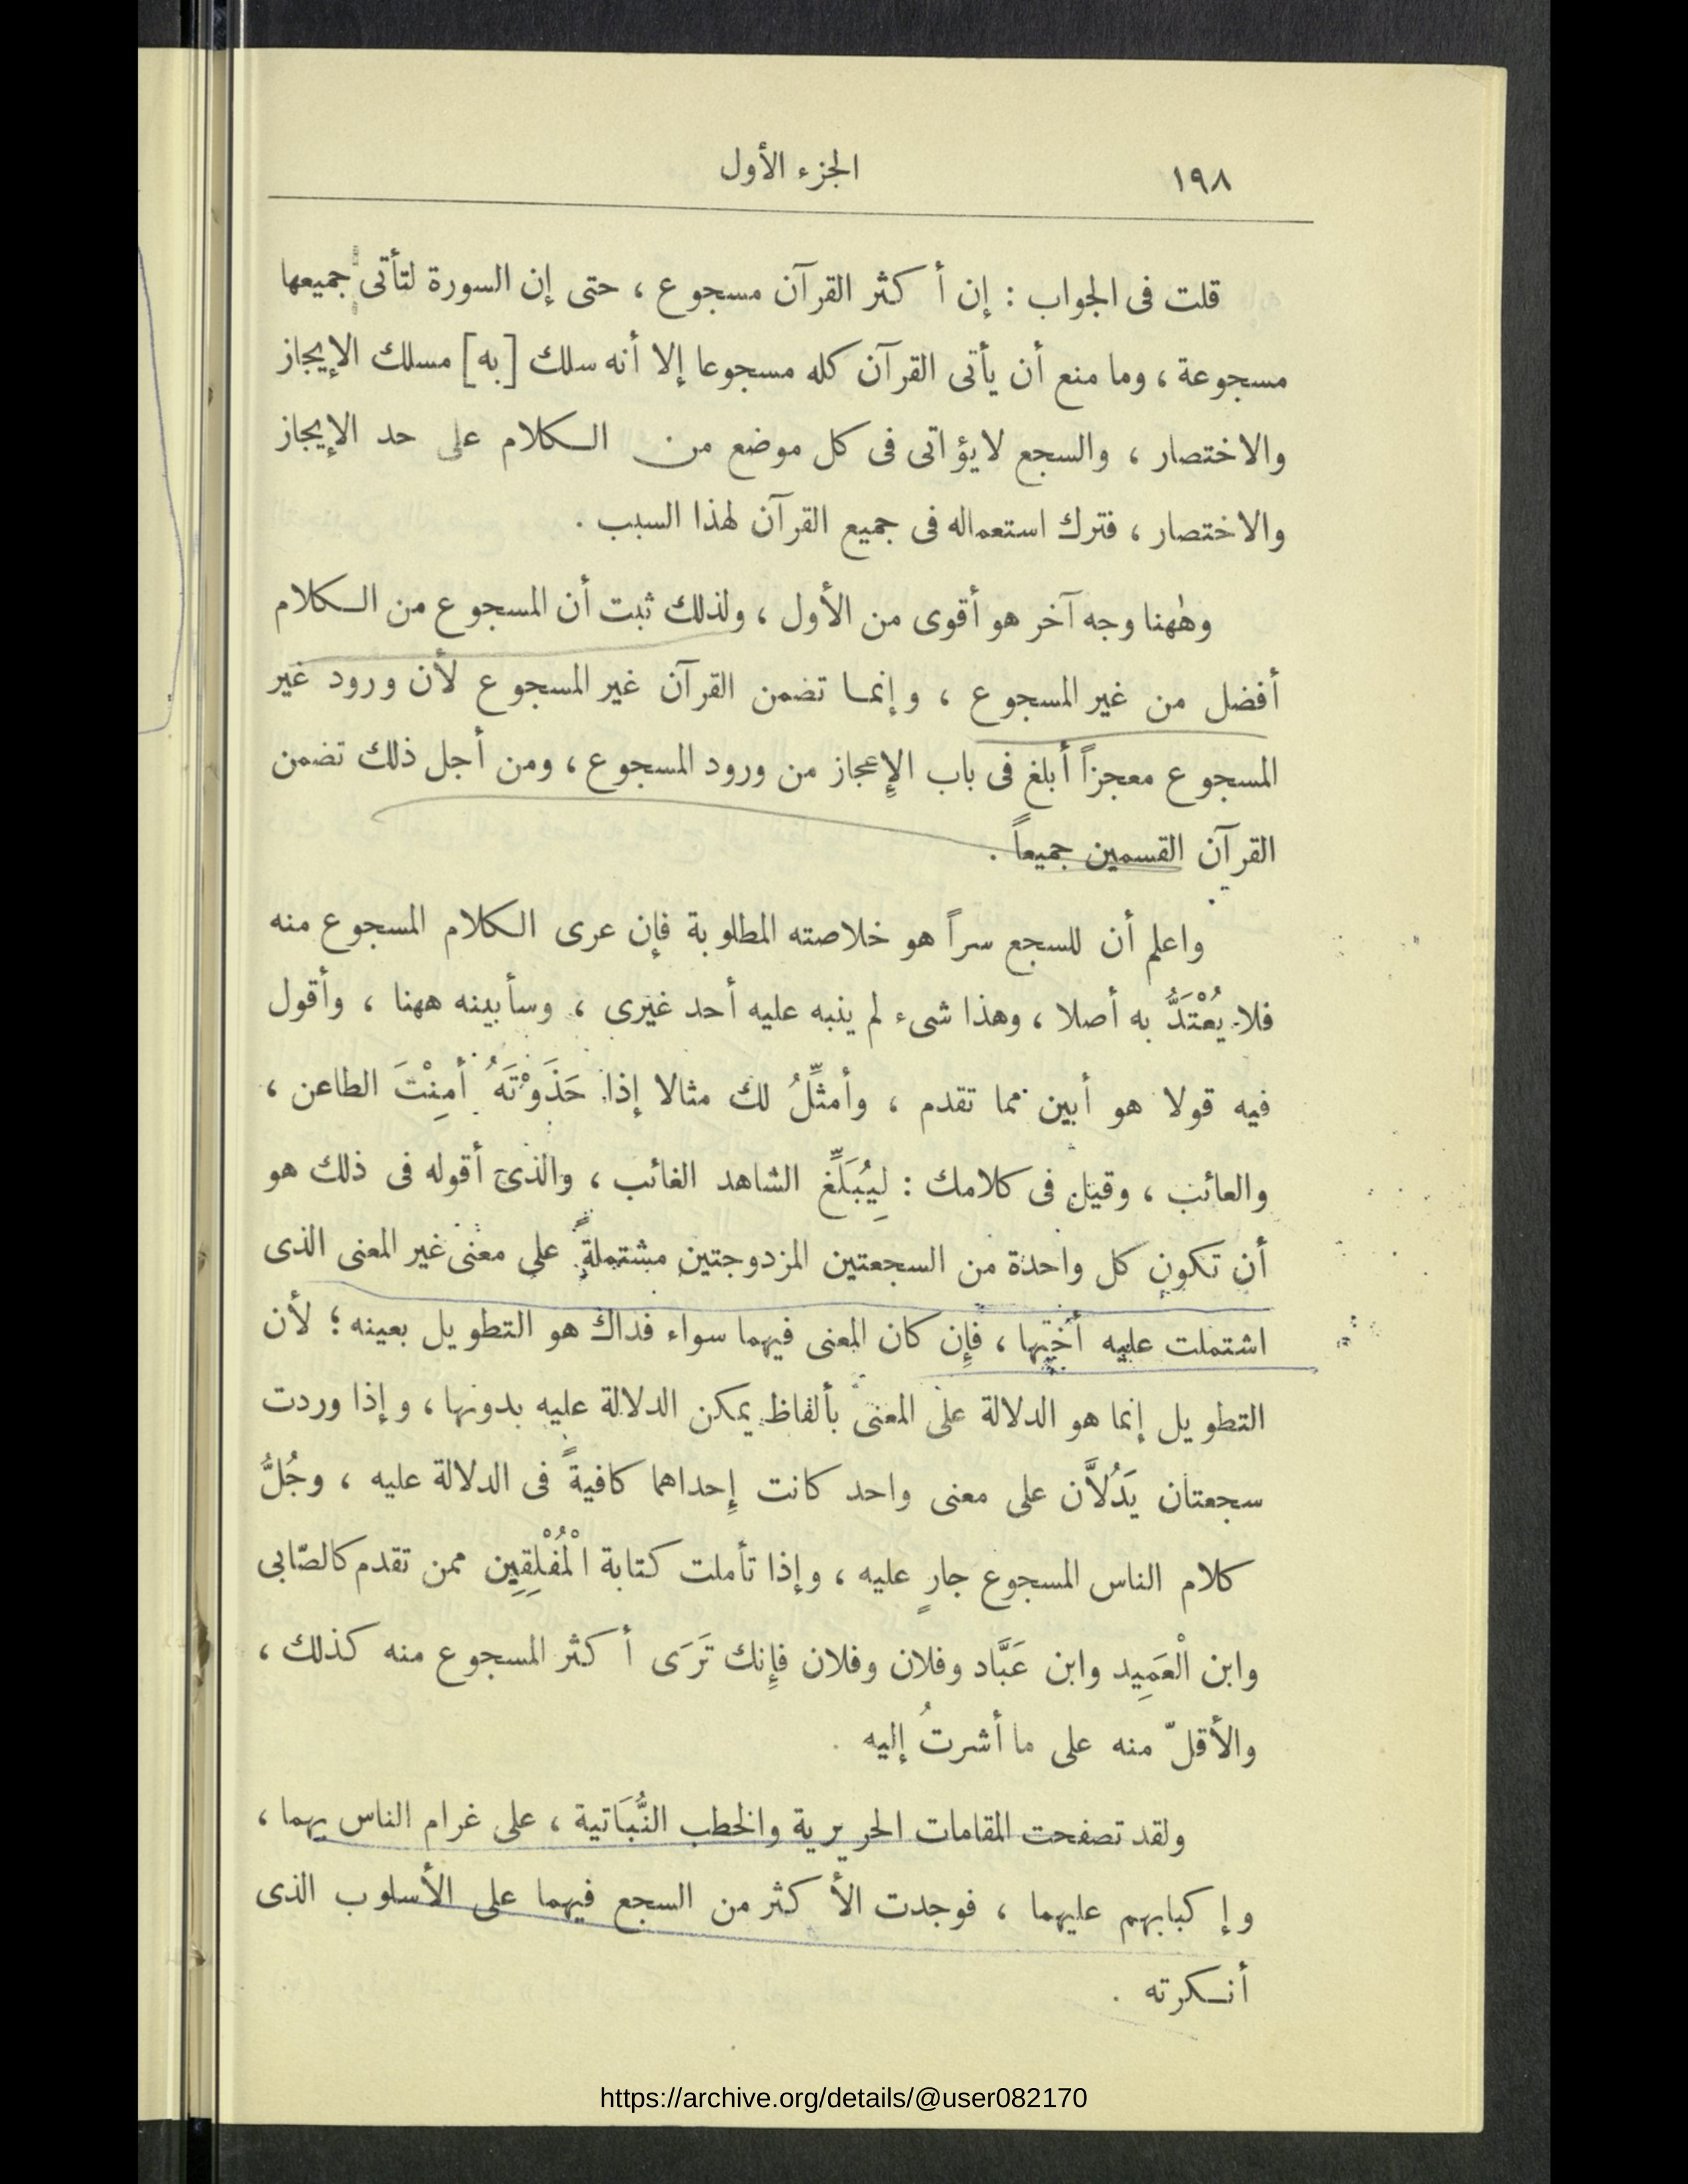 ١٩٨
الجزء الأول
قلت فى الجواب : إن أكثر القرآن مسجوع ، حتى إن السورة لتأتى جميعها
مسجوعة ، وما منع أن يأتى القرآن كله مسجوعا إلا أنه سلك [به] مسلك الإيجاز
والاختصار ، والسجع لا يؤاتى فى كل موضع من الكلام على حد الإيجاز
والاختصار ، فترك استعماله فى جميع القرآن لهذا السبب .
وههنا وجه آخر هو أقوى من الأول ، ولذلك ثبت أن المسجوع من الكلام
أفضل من غير المسجوع ، وإنما تضمن القرآن غير المسجوع لأن ورود غير
المسجوع معجزاً أبلغ فى باب الإعجاز من ورود المسجوع ، ومن أجل ذلك تضمن
القرآن القسمين جميعاً .
واعلم أن للسجع سراً هو خلاصته المطلوبة فإن عرى الكلام المسجوع منه
فلا يُعْتَدُّ به أصلا ، وهذا شىء لم ينبه عليه أحد غيرى ، وسأبينه ههنا ، وأقول
فيه قولا هو أبين مما تقدم ، وأمثِّلُ لك مثالا إذا حَذَوْتَهُ أمِنْتَ الطاعن ،
والعائب ، وقيل فى كلامك : لِيُبَلِّغ الشاهد الغائب ، والذى أقوله فى ذلك هو
أن تكون كل واحدة من السجعتين المزدوجتين مشتملةً على معنى غير المعنى الذى
اشتملت عليه أختها ، فإن كان المعنى فيهما سواء فذاك هو التطويل بعينه ؛ لأن
التطويل إنما هو الدلالة على المعنى بألفاظ يمكن الدلالة عليه بدونها ، وإذا وردت
سجعتان يَدُلاَّن على معنى واحد كانت إحداهما كافيةً فى الدلالة عليه ، وجُلُّ
كلام الناس المسجوع جارٍ عليه ، وإذا تأملت كتابة الْمُفْلِقِين ممن تقدم كالصّابى
وابن الْعَمِيد وابن عَبَّاد وفلان وفلان فإنك تَرَى أكثر المسجوع منه كذلك ،
والأقلّ منه على ما أشرتُ إليه .
ولقد تصفحت المقامات الحريرية والخطب النُّبَاتية ، على غرام الناس بهما ،
وإكبابهم عليهما ، فوجدت الأكثر من السجع فيهما على الأسلوب الذى
أنكرته .
https://archive.org/details/@user082170